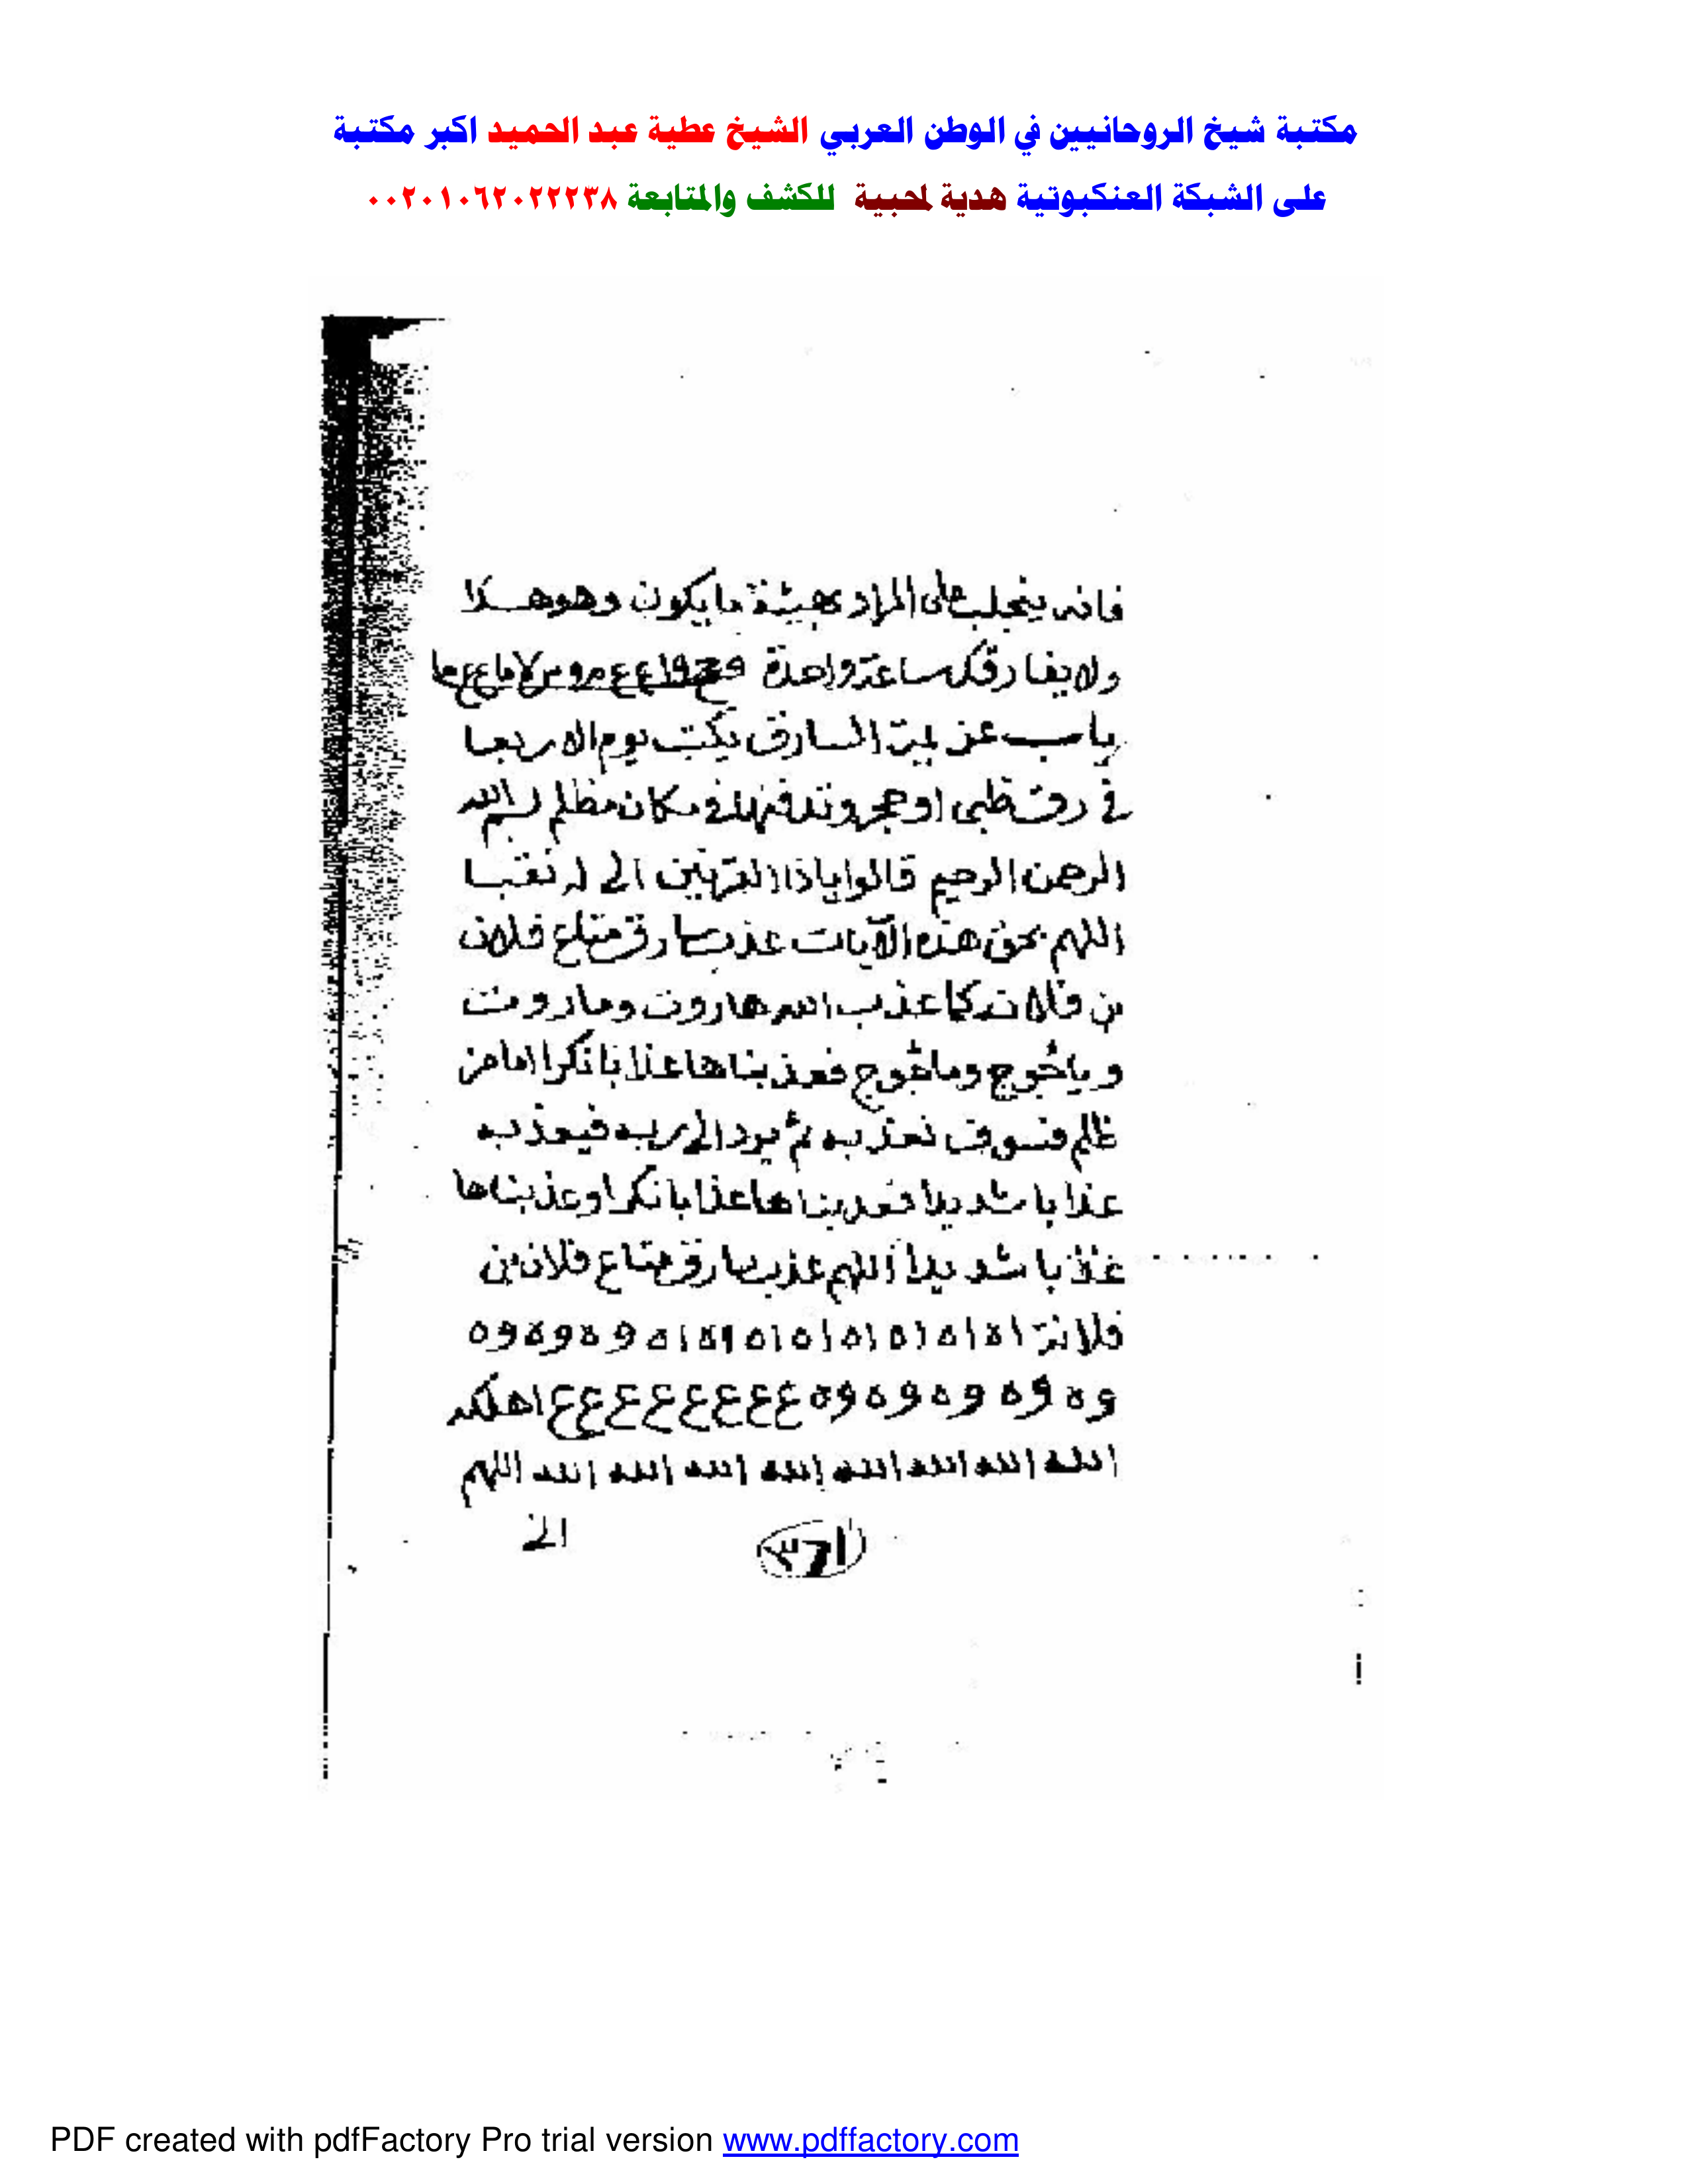 مكتبة شيخ الروحانيين في الوطن العربي الشيخ عطية عبد الحميد اكبر مكتبة
على الشبكة العنكبوتية هدية لمحبية للكشف والمتابعة ٠٠٢٠١٠٦٢٠٢٢٢٣٨
فانه ينجلب على المراد بهيئة ما يكون وهو هكذا
ولا يفارقك ساعة واحدة
باب عزيمة السارق يكتب يوم الاربعا
في رق ظبي او حجر وتدفنه في مكان مظلم بسم الله
الرحمن الرحيم قالوا ياذا القرنين الى له نقبا
اللهم بحق هذه الآيات عذب سارق متاع فلان
بن فلانه كما عذب الله هاروت وماروت
و ياجوج وماجوج فعذبناها عذابا نكرا اما من
ظلم فسوف نعذبه ثم يرد الى ربه فيعذبه
عذابا شديدا فعذبناها عذابا نكرا وعذبناها
عذابا شديدا اللهم عذب سارق متاع فلان بن
فلانة ا ه ا ه ا ه ا ه ا ه ا ه ا ه ا ه ا ه و ه و ه و ه
و ه و ه و ه و ه و ه ع ع ع ع ع ع ع ع اهلكه
الله الله الله الله الله الله الله الله الله اللهم
١٢٣
الى
PDF created with pdfFactory Pro trial version www.pdffactory.com